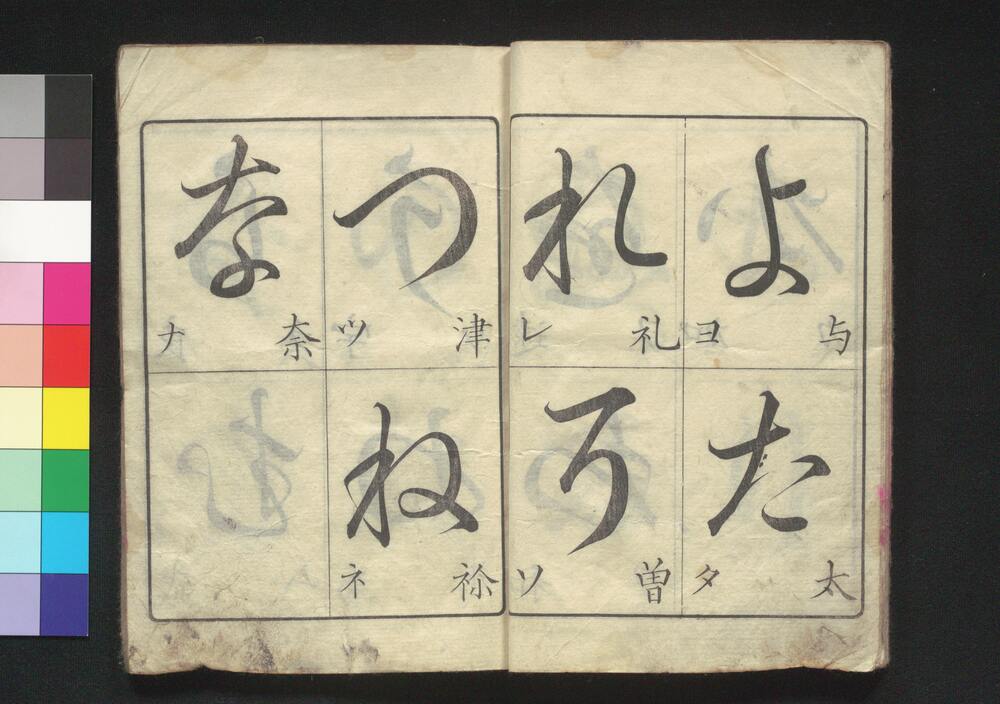 よ
与 ヨ
た
太 タ
れ
礼 レ
そ
曽 ソ
つ
津 ツ
ね
祢 ネ
な
奈 ナ